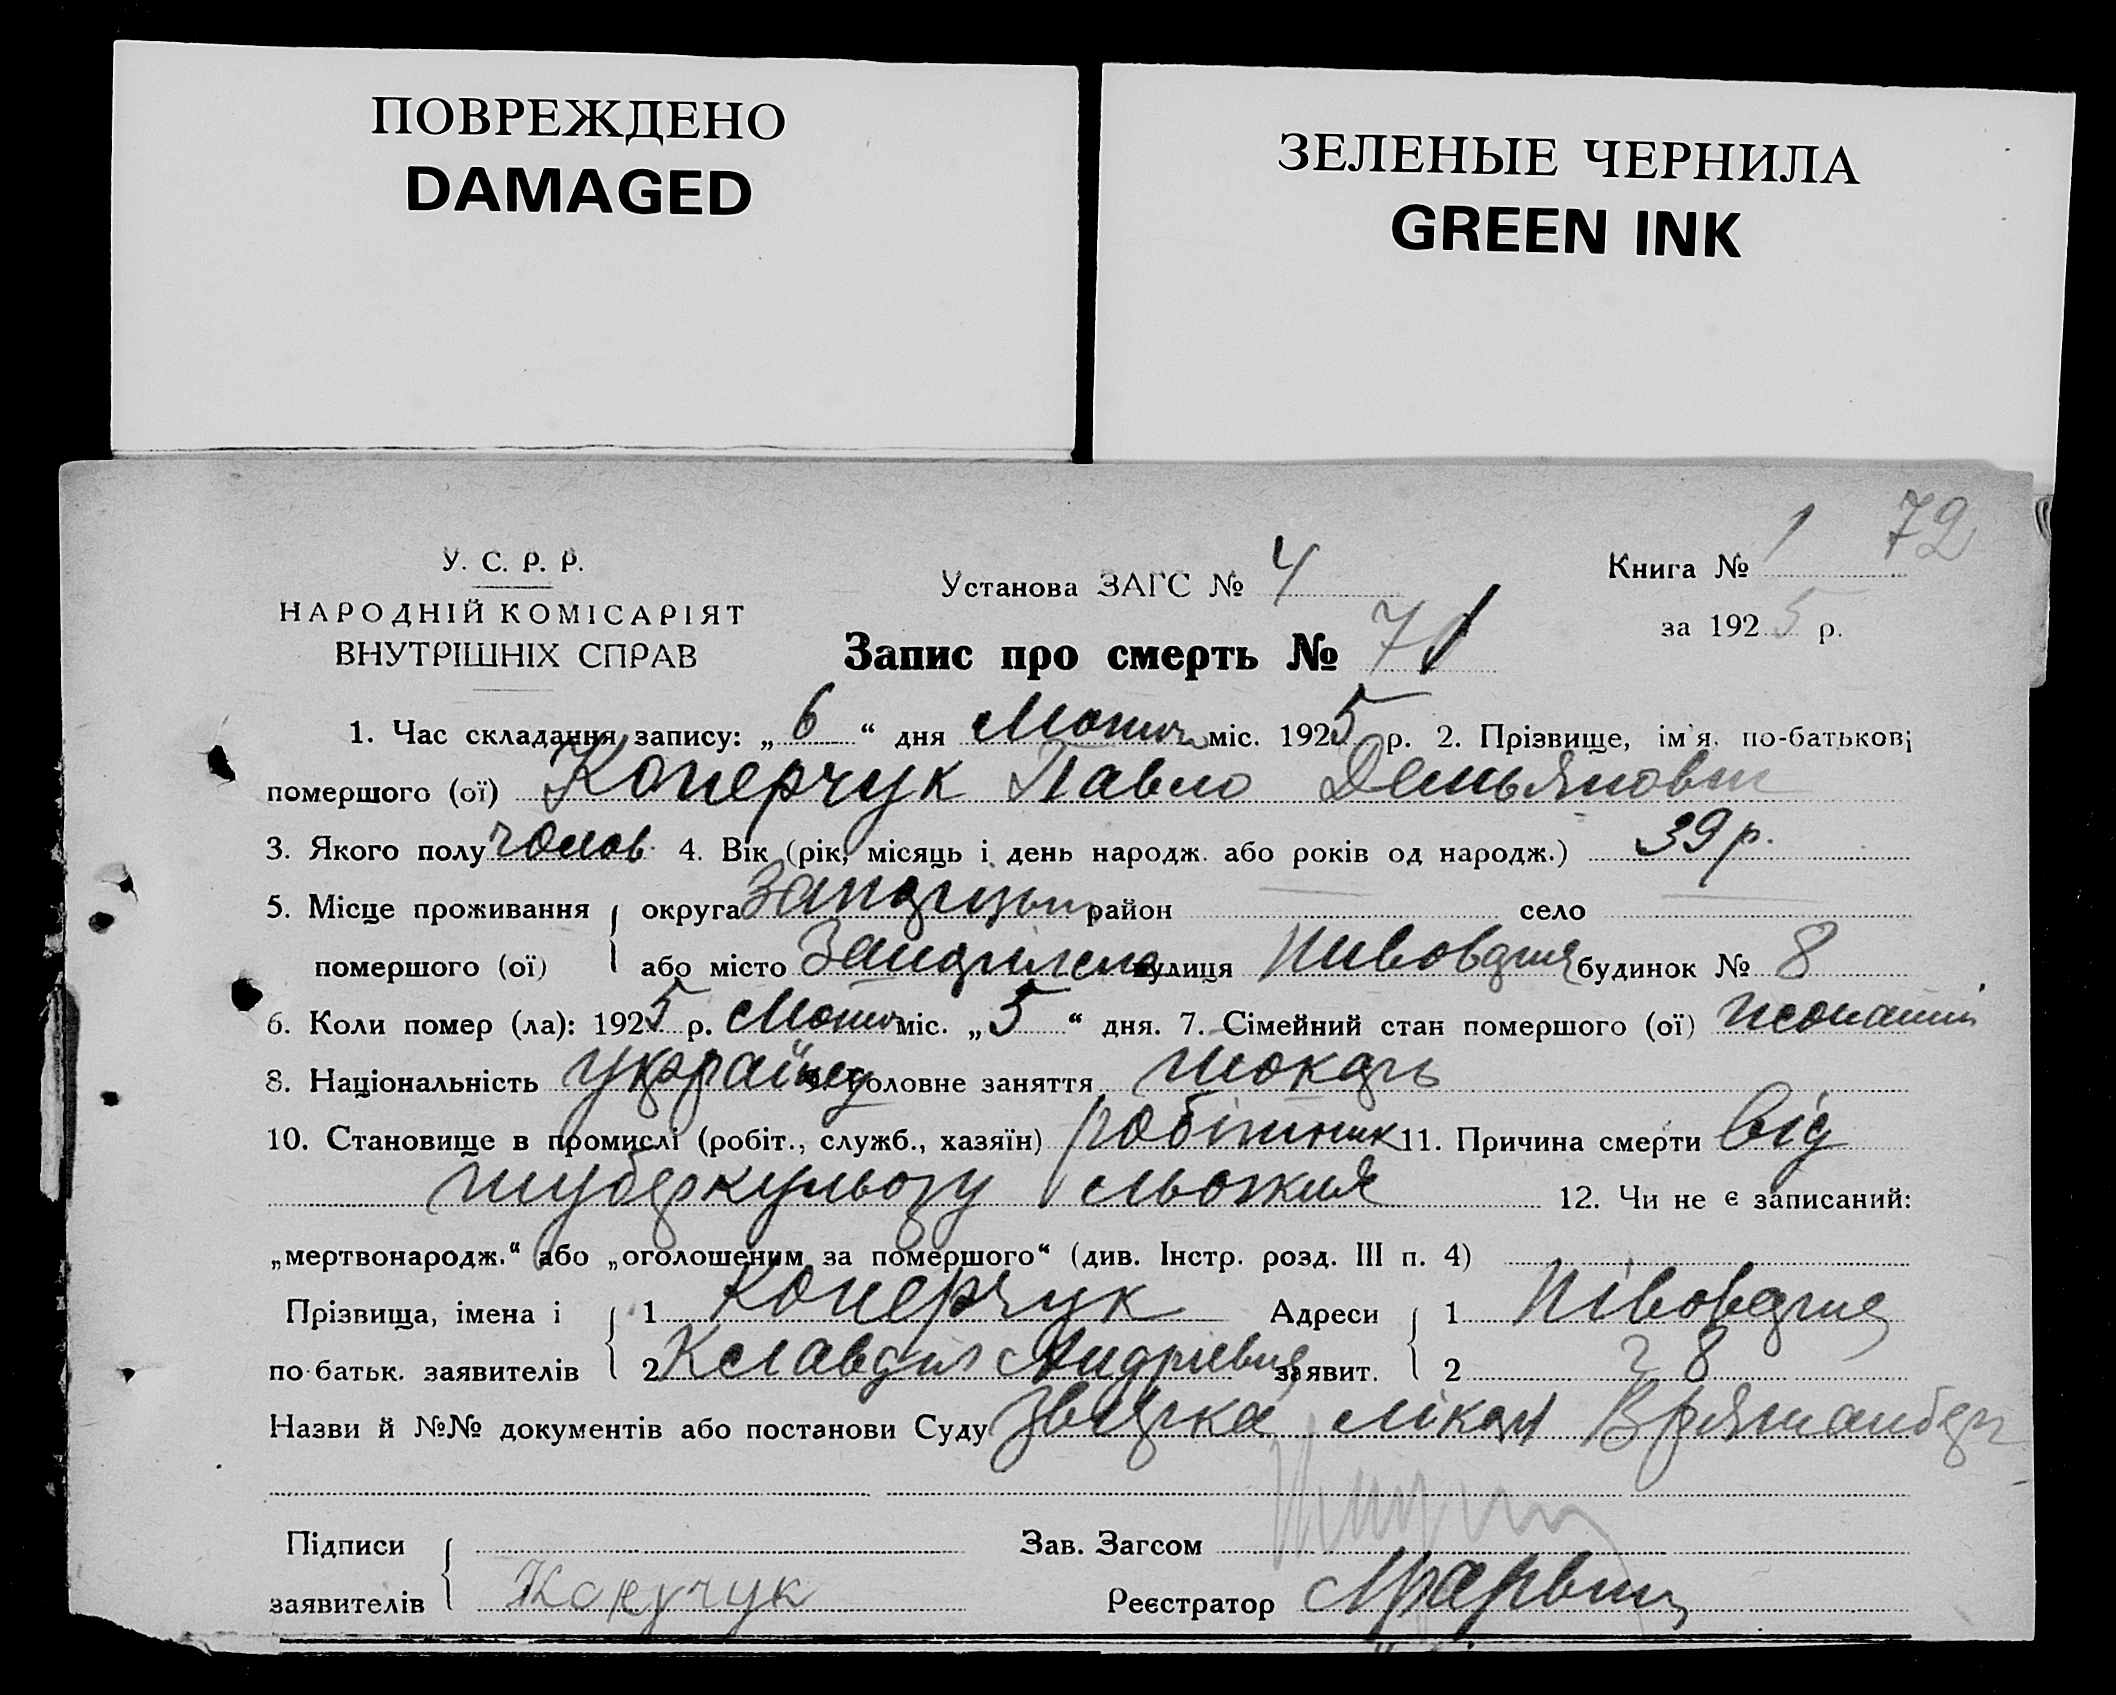 ПОВРЕЖДЕНО
DAMAGED
ЗЕЛЕНЫЕ ЧЕРНИЛА
GREEN INK
72
У. С. Р. Р.
НАРОДНІЙ КОМІСАРІЯТ
ВНУТРІШНІХ СПРАВ
Установа ЗАГС № 4
Книга № 1
за 1925 р.
Запис про смерть № 71
1. Час складання запису: „6“ дня міс. 1925 р. 2. Прізвище, ім'я, по-батькові
помершого (ої) Коперчук Павло Демьянович
3. Якого полу чолов. 4. Вік (рік, місяць і день народж. або років од народж.) 39 р.
5. Місце проживання округа район село
помершого (ої) або місто улиця будинок № 8
6. Коли помер (ла): 1925 р. міс. „5“ дня. 7. Сімейний стан помершого (ої) жонатий
8. Національність українец головне заняття токарь
10. Становище в промислі (робіт., служб., хазяїн) робітник 11. Причина смерти від
туберкульозу 12. Чи не є записаний:
„мертвонародж.“ або „оголошеним за помершого“ (див. Інстр. розд. III п. 4)
Прізвища, імена і 1 Коперчук Адреси 1
по-батьк. заявителів 2 Клавдія Андріевна заявит. 2 8
Назви й №№ документів або постанови Суду лікаря
Підписи Зав. Загсом
заявителів Реєстратор